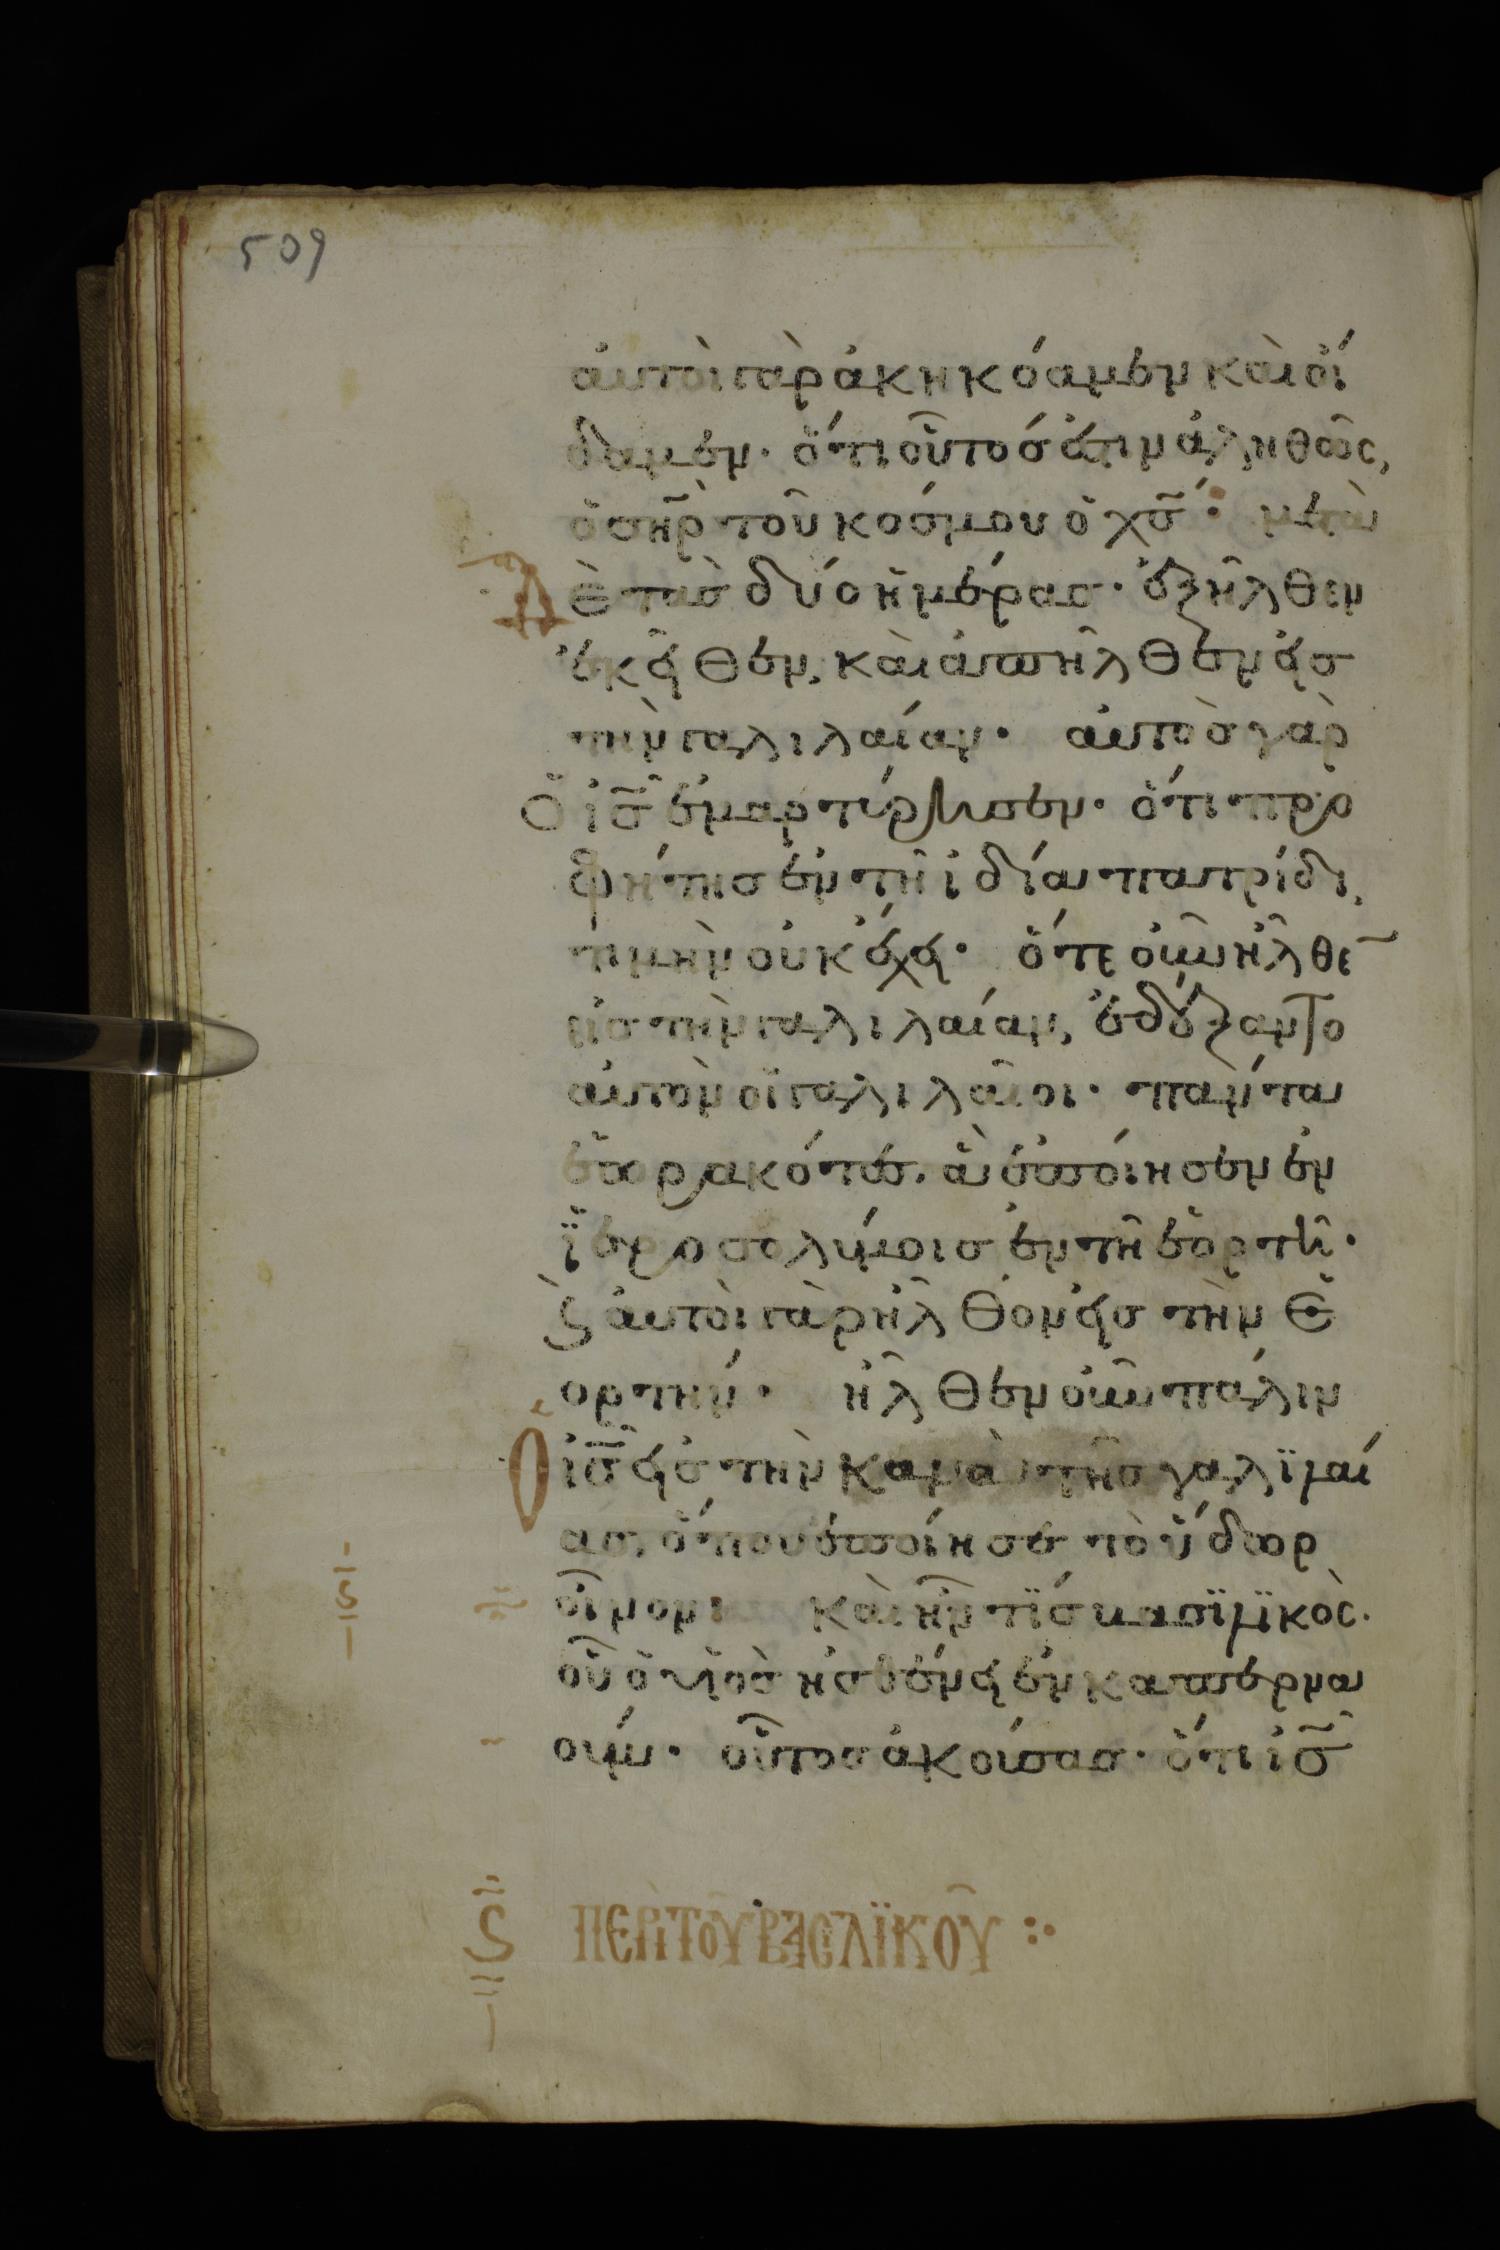 509
αὐτοὶ γὰρ ἀκηκόαμεν καὶ οἴ
δαμεν· ὅτι οὗτός ἐστιν ἀληθῶς,
ὁ σηρ τοῦ κόσμου ὁ χσ· μετὰ
δὲ τὰς δύο ἡμέρας· ἐξῆλθεν
ἐκεῖθεν, καὶ ἀπῆλθεν εἰσ
τὴν γαλιλαίαν· αὐτὸσ γὰρ
ὁ ἰσ ἐμαρτύρησεν· ὅτι προ
φήτησ ἐν τῆ ἰδία πατρίδι,
τιμὴν οὐκ ἔχει· ὅτε οὖν ἦλθε̄
εἰσ τὴν γαλιλαίαν, ἐδέξαντο
αὐτὸν οἱ γαλιλαῖοι· πάντα
ἑωρακότεσ, ἃ ἐποίησεν ἐν
ἱεροσολύμοισ ἐν τῆ ἑορτῆ·
ϛ αὐτοὶ γὰρ ἦλθον εἰσ τὴν ἑ
ορτήν· ἦλθεν οὖν πάλιν
ὁ ἰσ εἰσ τὴν κανὰ τῆσ γαλιλαί
ασ, ὅπου ἐποίησε τὸ ὕδωρ
οἶνον· καὶ ἦν τὶσ βασιλικὸς·
οὗ ὁ υἱὸσ ἠσθένει ἐν καπερνα
ούμ· οὗτοσ ἀκούσασ· ὅτι ἰσ
ϛ ΠΕΡῚ ΤΟΥ͂ ΒΑΣΙΛΪΚΟΥ͂ :·